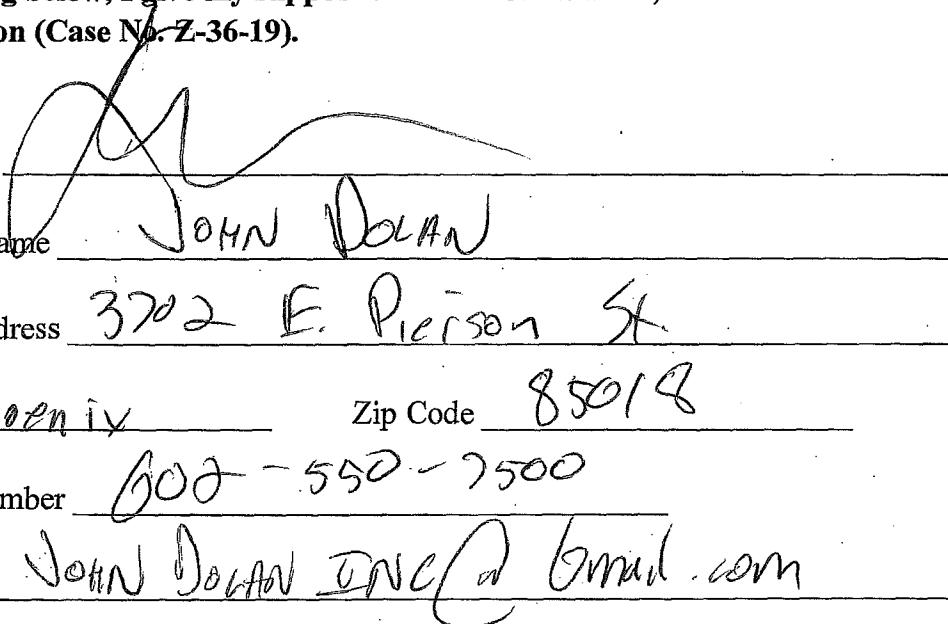 g below, I give my suppo
on (Case No. Z-36-19).
ame JOHN DOLAN
dress 3702 E. Pierson St.
oenix Zip Code 85018
mber 602-550-7500
JOHN DOLAN INC@Gmail.com